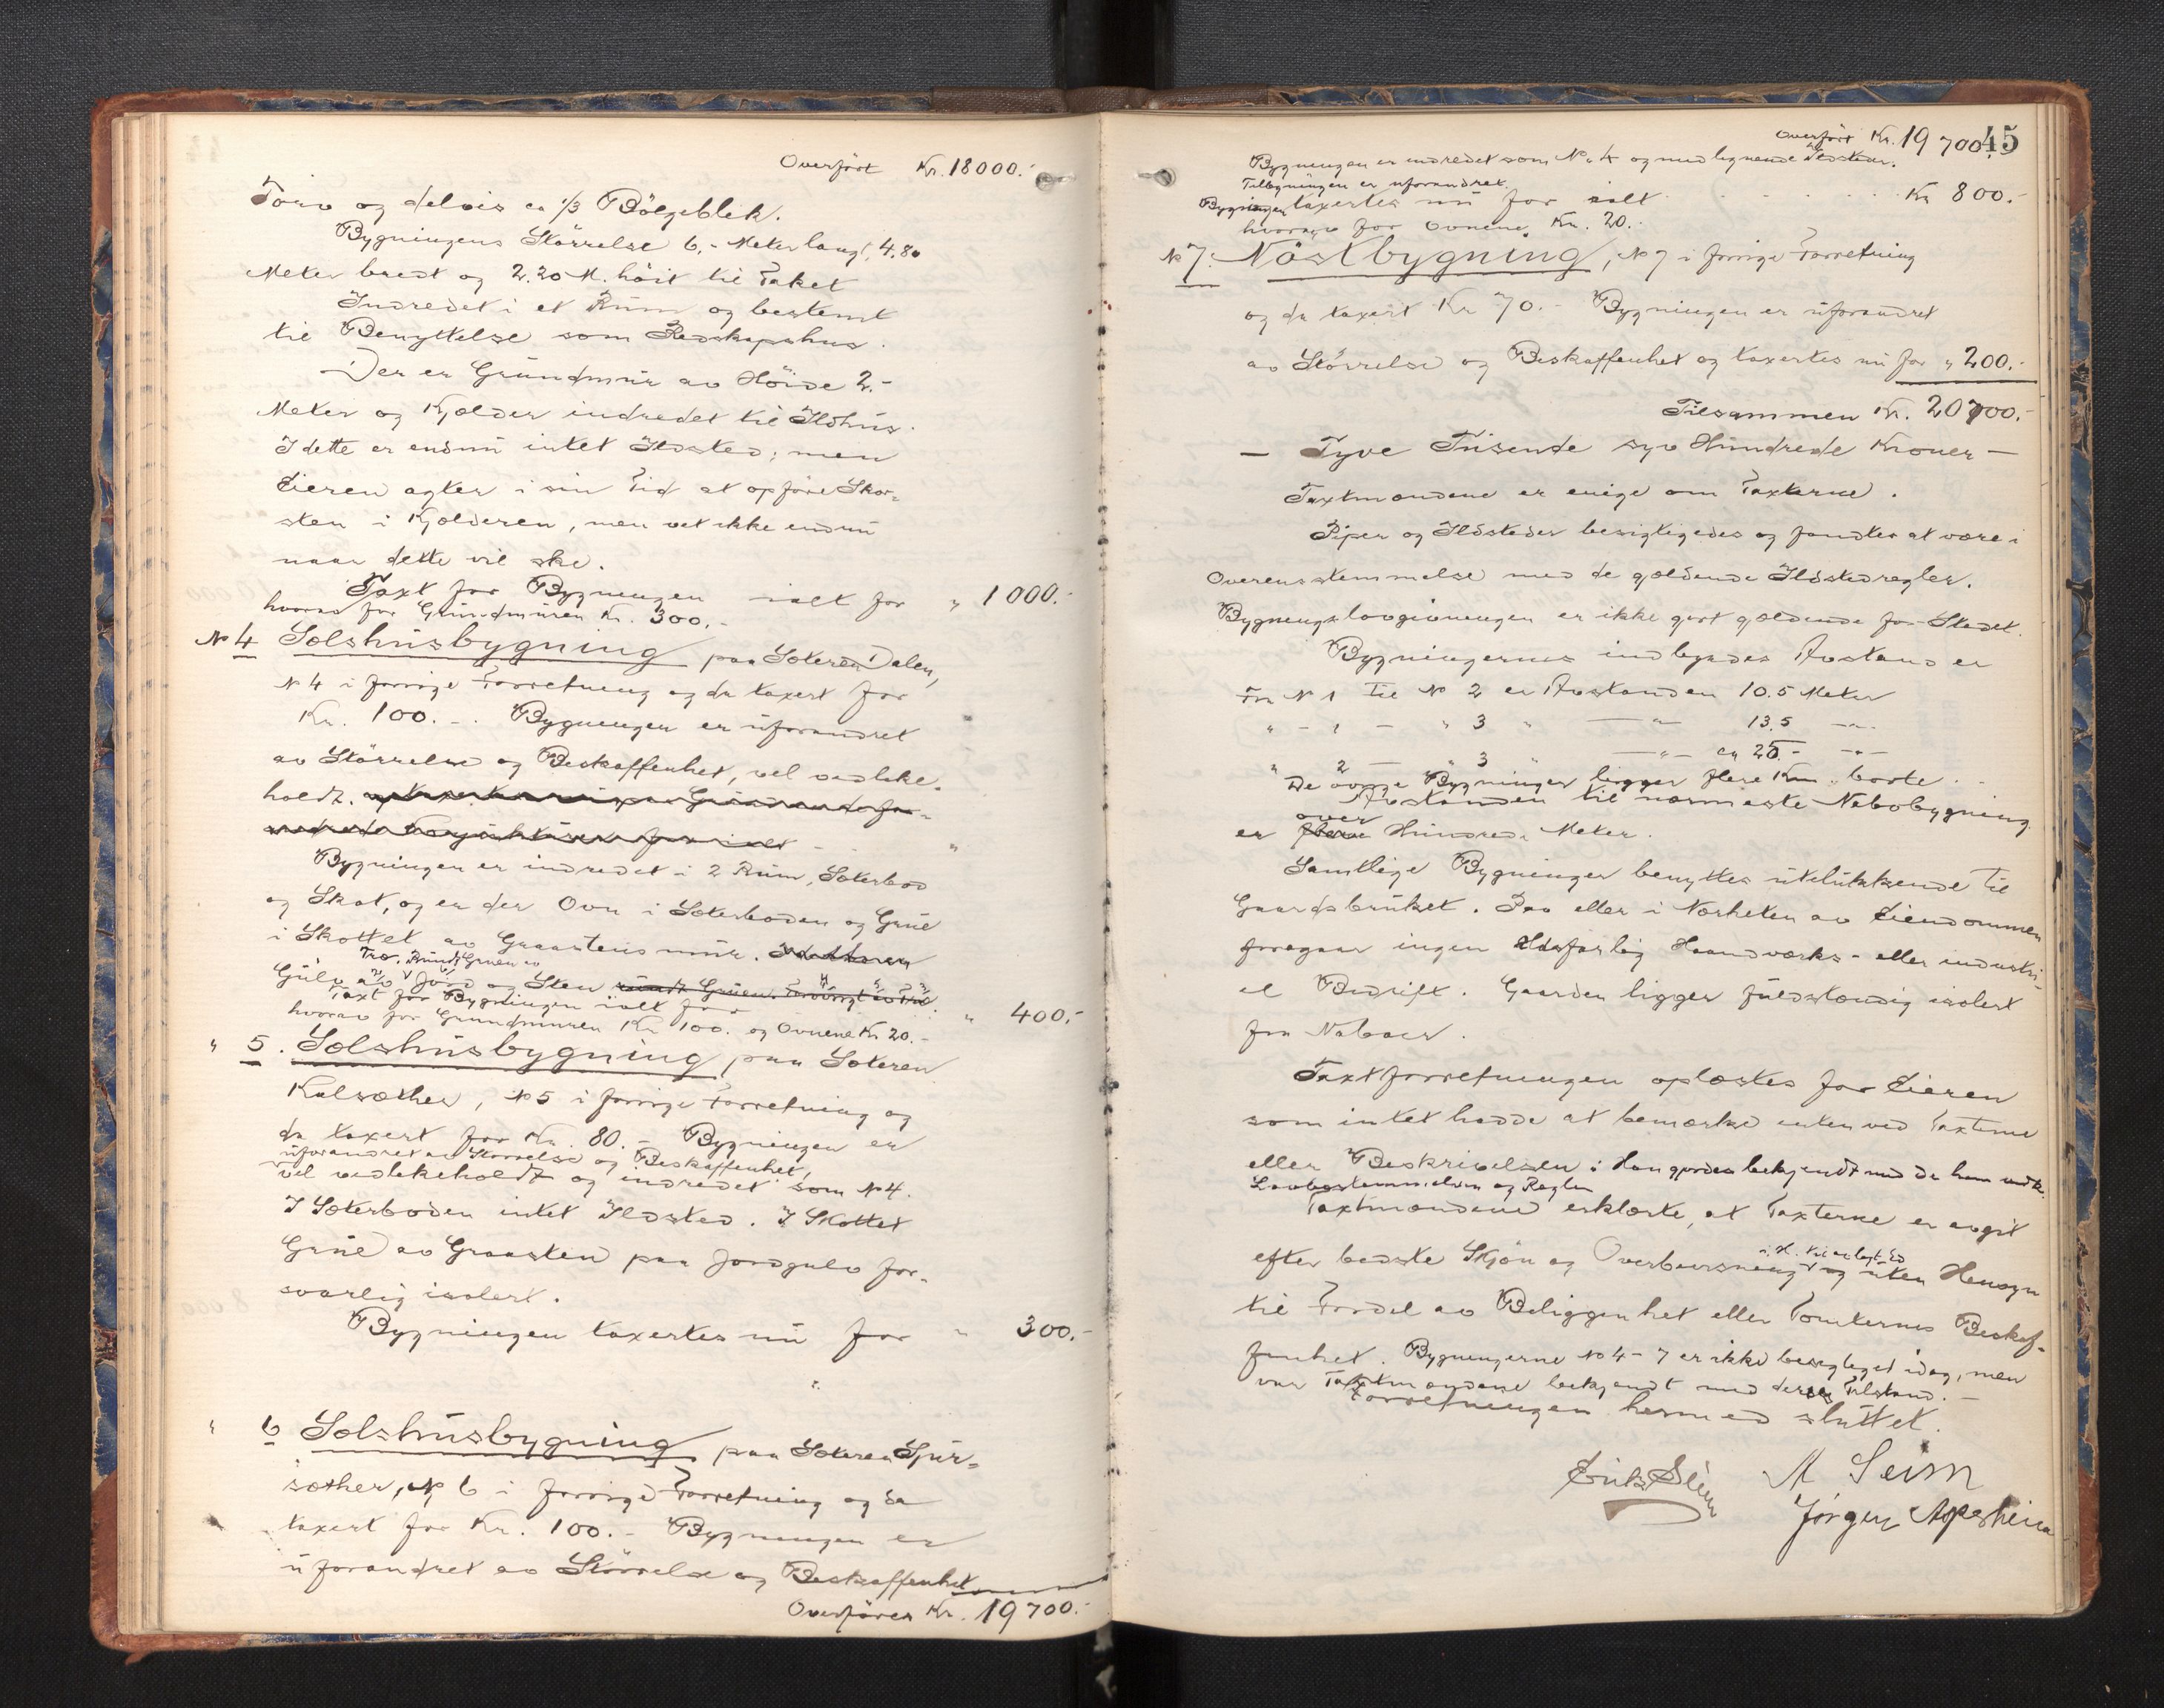 Overført Kr. 18000.-
Torv og delvis ca 1/3 Bölgeblek.
Bygningens Störrelse 6,- Meter langt, 4.80
Meter bredt og 2.20 M. höit til Taket
Indredet i et Rum og bestemt
til Benyttelse som Redskapshus.
Der er Grundmur av Höide 2.-
Meter og Kjælder indredet til Ildhus.
I dette er endnu intet Ildsted; men
Eieren agter i sin Tid at opföre Skor-
sten i Kjælderen, men vet ikke endnu
naar dette vil ske.
Taxt for Bygningen ialt for " 1000.-
hvorav for Grundmuren Kr. 300.-
No 4 Sælshusbygning paa Sæteren Dalen,
No 4 i forrige Forretning og da taxert for
Kr. 100.-. Bygningen er uforandret
av Störrelse og Beskaffenhet, vel vedlike-
holdt.
Bygningen er indredet i 2 Rum, Sæterbod
og Skot, og er der Ovn i Sæterboden og Grue
i Skottet av Graastensmur.
Træ. Rundt Gruen av
Gulv av Jord og Sten
Taxt for Bygningen ialt for " 400.-
hvorav for Grundmuren Kr 100. og Ovnene Kr 20.-
" 5. Sælshusbygning paa Sæteren
Kalsæther, No 5 i forrige Forretning og
da taxert for Kr. 80.- Bygningen er
uforandret av Störrelse og Beskaffenhet,
vel vedlikeholdt og indredet som No 4.
I Sæterboden intet Ildsted. I Skottet
Grue av Graasten paa Jordgulv for-
svarlig isolert.
Bygningen taxertes nu for " 300.-
" 6 Sælshusbygning paa Sæteren Spur-
sæther, No 6 i forrige Forretning og da
taxert for Kr. 100.- Bygningen er
uforandret av Störrelse og Beskaffenhet
Overføres Kr. 19700.-
45
Overført Kr. 19 700.-
Bygningen er indredet som No 4 og med lignende Ildsteder.
Tilbygningen er uforandret.
Bygningen taxertes nu for ialt Kr 800.-
hvorav for Ovnene Kr. 20.-
No 7. Nöstbygning, No 7 i forrige Forretning
og da taxert Kr 70.- Bygningen er uforandret
av Störrelse og Beskaffenhet og taxertes nu for " 200.-
Tilsammen Kr. 20700.-
— Tyve Tusende syv Hundrede Kroner —
Taxtmændene er enige om Taxterne.
Piper og Ildsteder besigtigedes og fandtes at være i
Overensstemmelse med de gældende Ildstedregler.
Bygningslovgivningen er ikke gjort gældende for Stedet.
Bygningernes indbyrdes Avstand er
Fra No 1 til No 2 er Avstanden 10.5 Meter
" - 1 - " 3 " —"— 13.5 —"—
" 2 — " 3 —"— ca 25.- —"—
De øvrige Bygninger ligger flere Km. borte.
Avstanden til nærmeste Nabobygning
er over flere Hundrede Meter.
Samtlige Bygninger benyttes utelukkende til
Gaardsbruket. Paa eller i Nærheten av Eiendommen
foregaar ingen ildsfarlig Haandværks- eller industri-
el Bedrift. Gaarden ligger fuldstændig isolert
fra Naboer.
Taxtforretningen oplæstes for Eieren
som intet hadde at bemærke enten ved Taxterne
eller Beskrivelsen. Han gjordes bekjendt med de ham vedk.
Lovbestemmelser og Regler
Taxtmændene erklærte, at Taxterne er avgit
efter bedste Skjön og Overbevisning i H. til avlagt Ed og uten Hensyn
til Fordel av Beliggenhet eller Tomternes Beskaf-
fenhet. Bygningerne No 4-7 er ikke besigtiget idag, men
var Taxtmændene bekjendt med deres Tilstand.-
Forretningen hermed sluttet.
M Seim
Jörgen